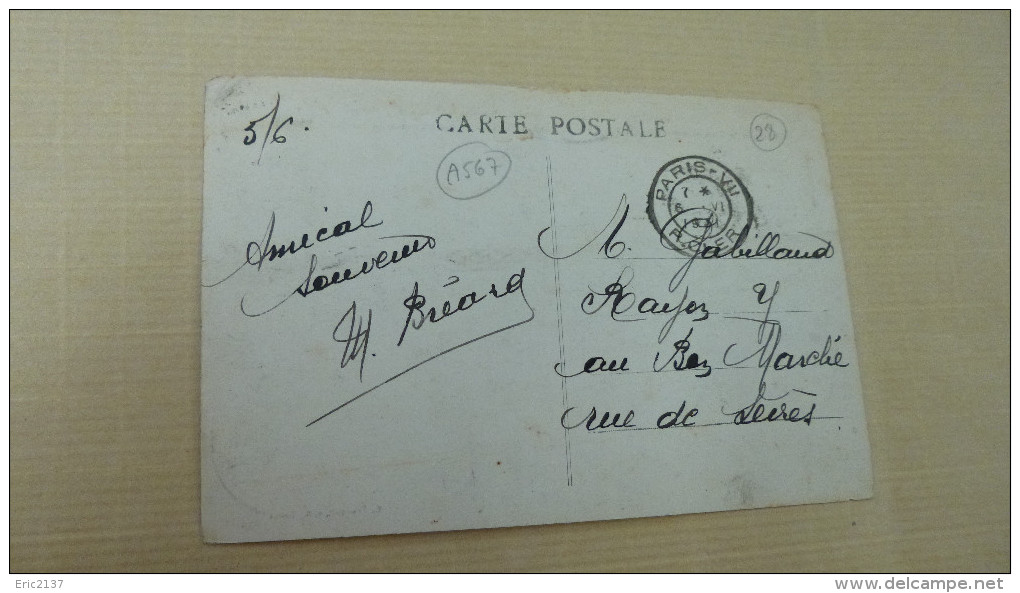 CARTE POSTALE
5/6.
A567
28
PARIS-VII
7 *
6 VI
Amical
Souvenir
M. Bréard
M. Jabilland
Rayon Y
au Bon Marché
rue de Sèvres
Eric2137
www.delcampe.net